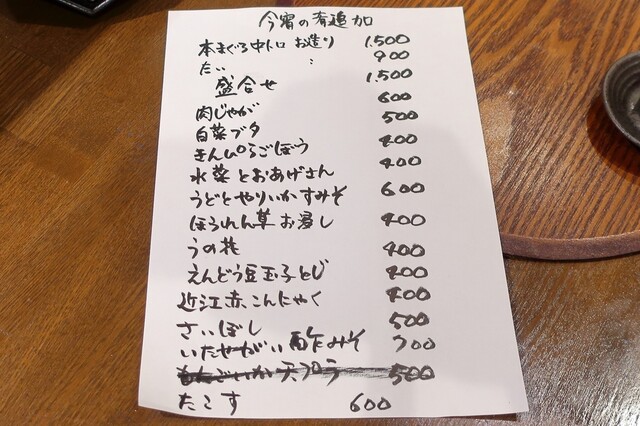 今宵の肴追加
本まぐろ中トロ お造り 1,500
たい 〃 900
盛合せ 1,500
肉じゃが 600
白菜ブタ 500
きんぴらごぼう 400
水菜とおあげさん 400
うどとやりいかすみそ 600
ほうれん草お浸し 400
うの花 400
えんどう豆玉子とじ 400
近江赤こんにゃく 400
さいぼし 500
いたやがい酢みそ 700
もんごいか天プラ 500
たこす 600